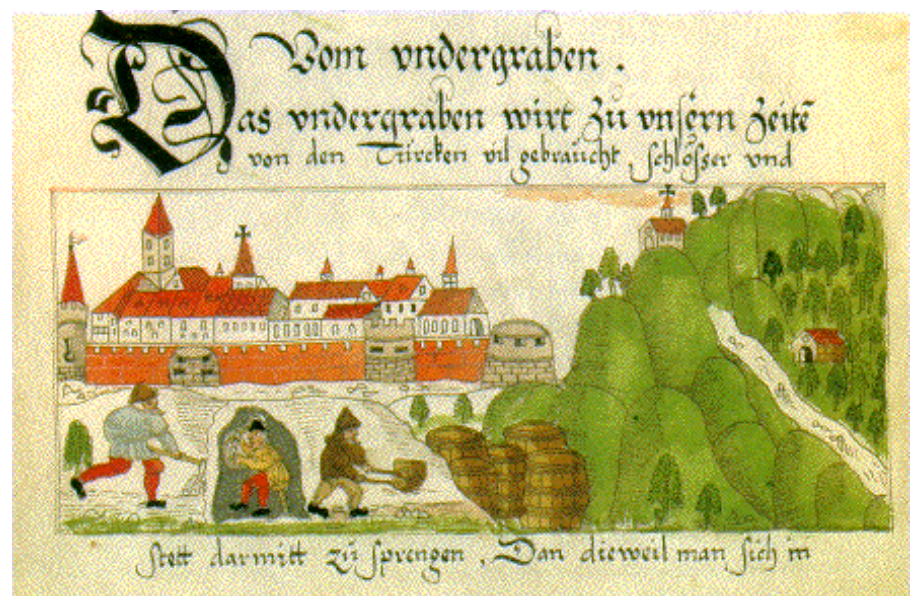 Vom vndergraben.
Das vndergraben wirt zů vnsern Zeitē
von den Türcken vil gebraucht, schlösser vnd
stett darmitt zů sprengen, Dan dieweil man sich in